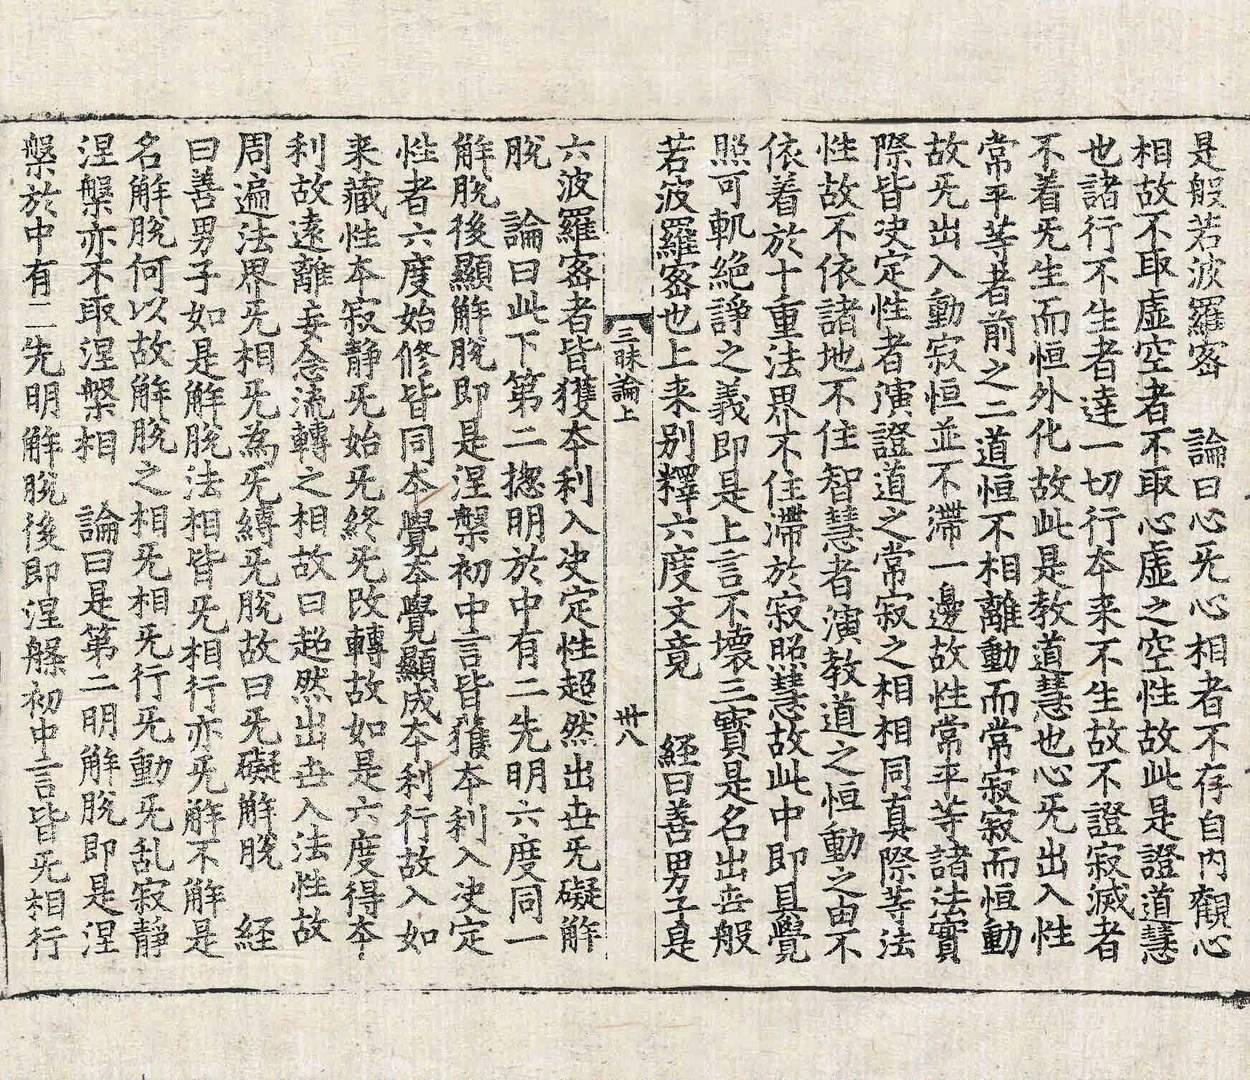 是般若波羅宻 論曰心旡心相者不存自內觀心
相故不取虛空者不取心虛之空性故此是證道慧
也諸行不生者達一切行夲来不生故不證寂滅者
不着旡生而恒外化故此是教道慧也心旡出入性
常平等者前之二道恒不相離動而常寂寂而恒動
故旡出入動寂恒並不滯一邊故性常平等諸法實
際皆决定性者演證道之常寂之相相同真際等法
性故不依諸地不住智慧者演教道之恒動之由不
依着於十重法界不住滯於寂照慧故此中即具覺
照可軌絶諍之義即是上言不壞三寳是名出世般
若波羅宻也上来别釋六度文竟 經曰善男子是
三昧論上 卅八
六波羅宻者皆獲夲利入决定性超然出世旡礙解
脫 論曰此下第二揔明於中有二先明六度同一
解脫後顯解脫即是涅槃初中言皆獲夲利入决定
性者六度始修皆同夲覺夲覺顯成夲利行故入如
来藏性夲寂靜旡始旡終旡改轉故如是六度得夲
利故遠離妄念流轉之相故曰超然出世入法性故
周遍法界旡相旡為旡縛旡脫故曰旡礙解脫 經
曰善男子如是解脫法相皆旡相行亦旡解不解是
名解脫何以故解脫之相旡相旡行旡動旡乱寂靜
涅槃亦不取涅槃相 論曰是第二明解脫即是涅
槃於中有二先明解脫後即涅槃初中言皆旡相行